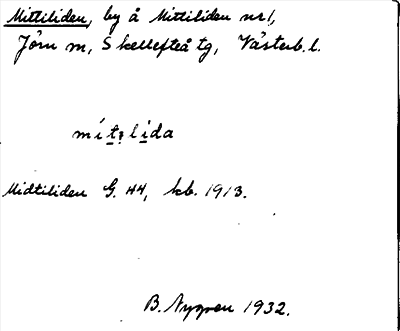 Mittiliden, by å Mittiliden nr 1,
Jörn sn, Skellefteå tg, Västerb. l.
mítilida
Midtiliden G. 44, kb. 1913.
B. Nygren 1932.